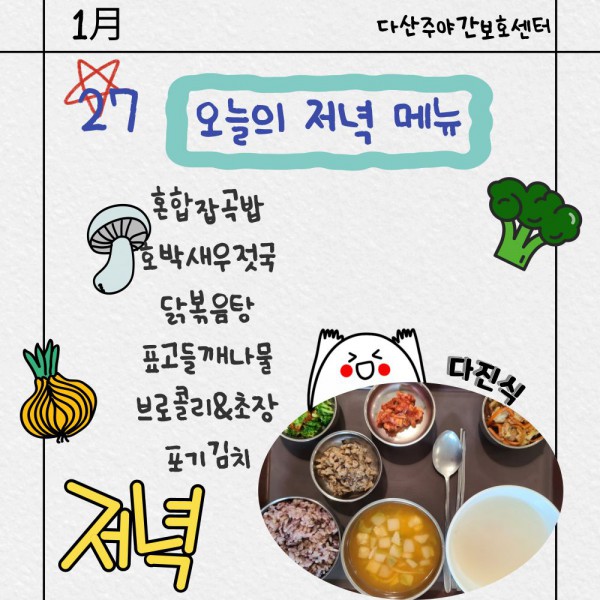 1月
다산주야간보호센터
27
오늘의 저녁 메뉴
혼합잡곡밥
호박새우젓국
닭볶음탕
표고들깨나물
브로콜리&초장
포기김치
다진식
저녁